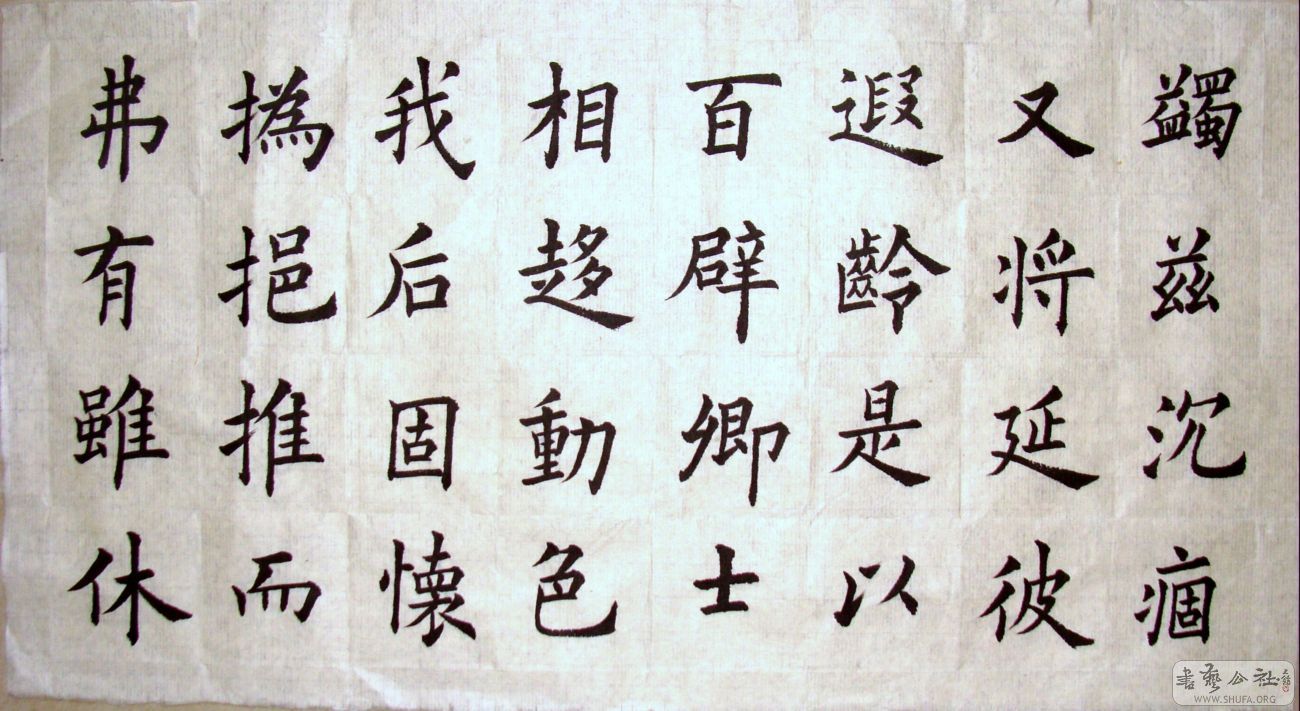 蠲兹沉痼
又将延彼
遐齡是以
百辟卿士
相趍動色
我后固懷
撝挹推而
弗有雖休
書藝公社
WWW.SHUFA.ORG